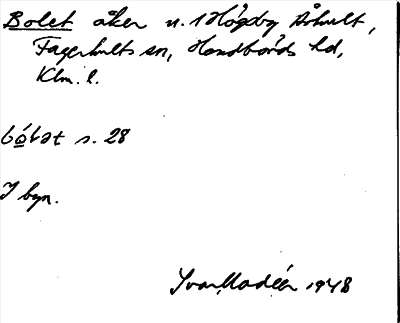 Bolet åker n. 1 Högsby Åshult,
Fagerhults sn, Handbörds hd,
Klm. l.
bó̲lət s. 28
I byn.
Ivar Modéer 1948